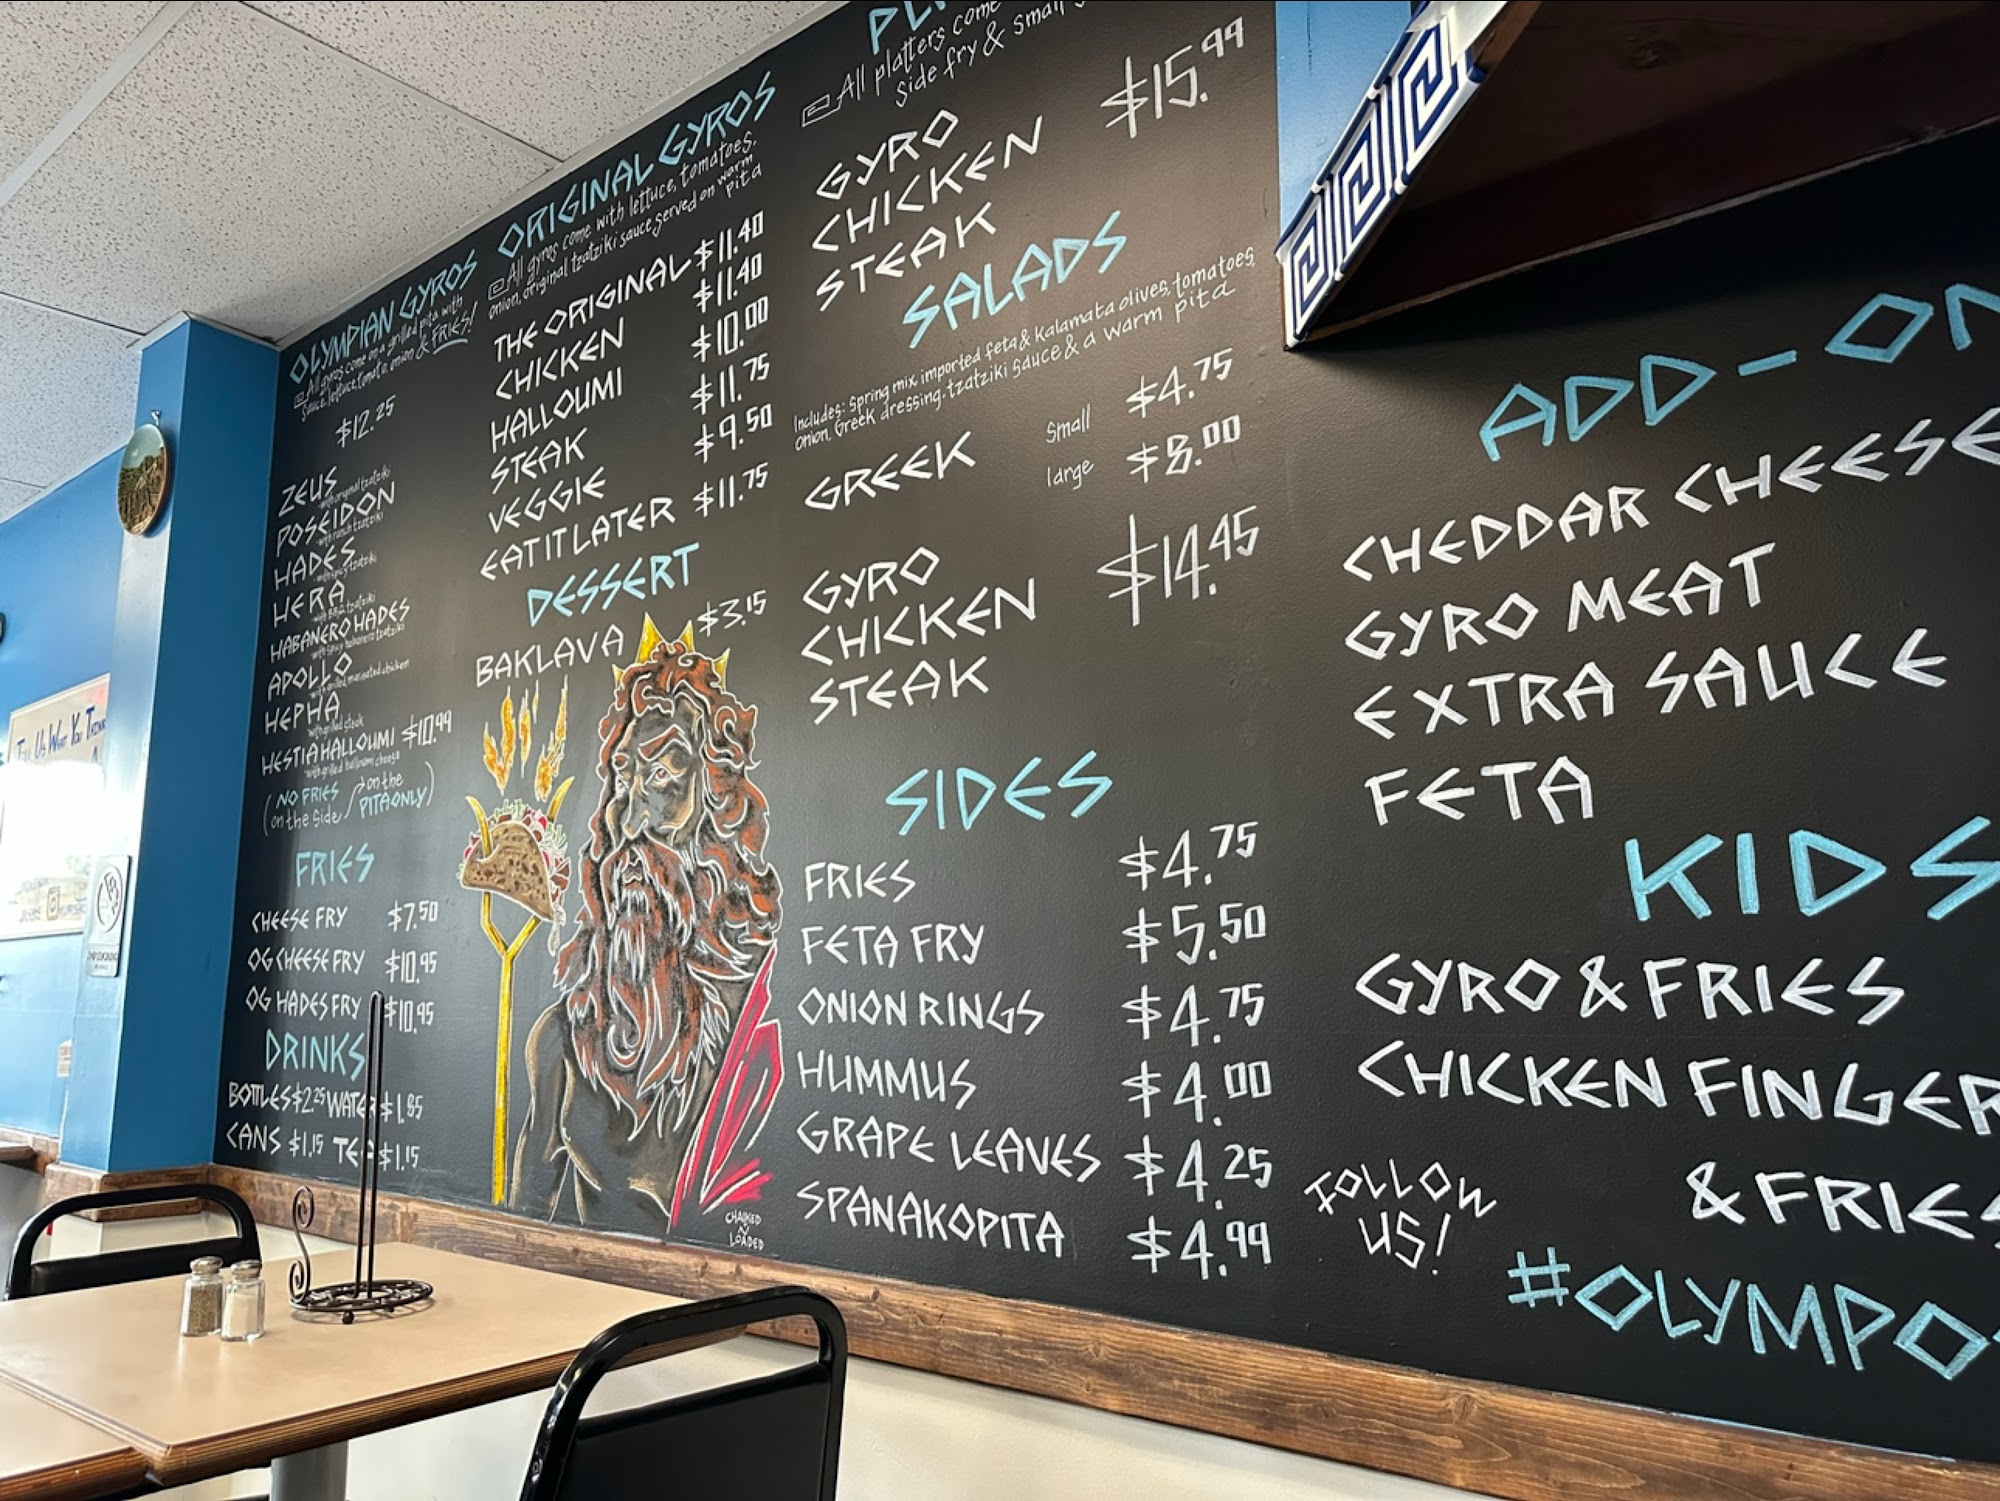 OLYMPIAN GYROS
All gyros come on a grilled pita with
sauce, lettuce, tomato, onion & FRIES!
$12.25
ZEUS
-with original tzatziki
POSEIDON
-with ranch tzatziki
HADES
-with spicy tzatziki
HERA
-with BBQ tzatziki
HABANERO HADES
-with spicy habanero tzatziki
APOLLO
-with grilled marinated chicken
HEPHA
-with grilled steak
HESTIA HALLOUMI $10.99
-with grilled halloumi cheese
(NO FRIES on the
on the side PITA ONLY)
FRIES
CHEESE FRY $7.50
OG CHEESE FRY $10.95
OG HADES FRY $10.95
DRINKS
BOTTLES $2.25 WATER $1.85
CANS $1.15 TEA $1.15
ORIGINAL GYROS
All gyros come with lettuce, tomatoes,
onion, original tzatziki sauce served on warm
pita
THE ORIGINAL $11.40
CHICKEN $11.40
HALLOUMI $10.00
STEAK $11.75
VEGGIE $9.50
EAT IT LATER $11.75
DESSERT
BAKLAVA $3.15
CHALKED
N
LOADED
All platters come
side fry & small
GYRO
CHICKEN $15.99
STEAK
SALADS
Includes: Spring mix, imported feta & kalamata olives, tomatoes,
onion, Greek dressing, tzatziki sauce & a warm pita
GREEK
small $4.75
large $8.00
GYRO
CHICKEN $14.45
STEAK
SIDES
FRIES $4.75
FETA FRY $5.50
ONION RINGS $4.75
HUMMUS $4.00
GRAPE LEAVES $4.25
SPANAKOPITA $4.99
ADD-ON
CHEDDAR CHEESE
GYRO MEAT
EXTRA SAUCE
FETA
KIDS
GYRO & FRIES
CHICKEN FINGER
& FRIES
FOLLOW
US!
#OLYMPO